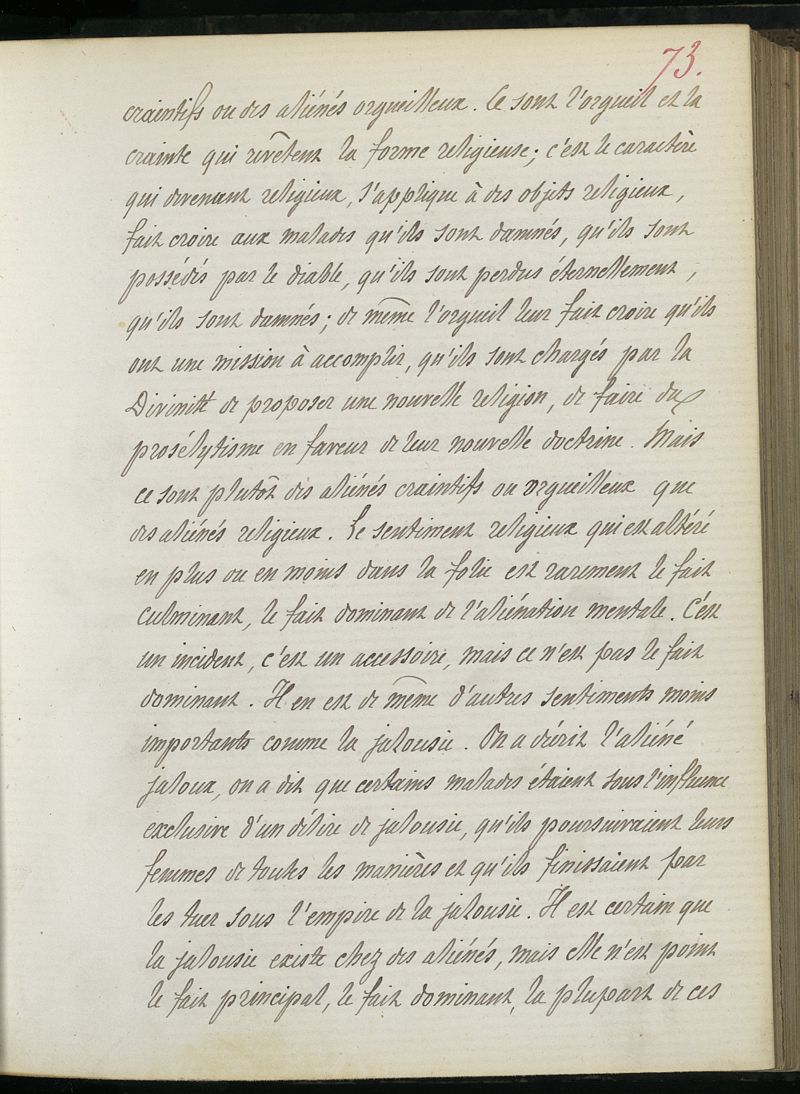 73.
craintifs ou des aliénés orgueilleux. Ce sont l'orgueil et la
crainte qui revêtent la forme religieuse; c'est le caractère
qui devenant religieux, s'applique à des objets religieux,
fait croire aux malades qu'ils sont damnés, qu'ils sont
possédés par le diable, qu'ils sont perdus éternellement,
qu'ils sont damnés; de même l'orgueil leur fait croire qu'ils
ont une mission à accomplir, qu'ils sont chargés par la
Divinité de proposer une nouvelle religion, de faire du
prosélytisme en faveur de leur nouvelle doctrine. Mais
ce sont plutôt des aliénés craintifs ou orgueilleux que
des aliénés religieux. Le sentiment religieux qui est altéré
en plus ou en moins dans la folie est rarement le fait
culminant, le fait dominant de l'aliénation mentale. C'est
un incident, c'est un accessoire, mais ce n'est pas le fait
dominant. Il en est de même d'autres sentiments moins
importants comme la jalousie. On a décrit l'aliéné
jaloux, on a dit que certains malades étaient sous l'influence
exclusive d'un délire de jalousie, qu'ils poursuivaient leurs
femmes de toutes les manières et qu'ils finissaient par
les tuer sous l'empire de la jalousie. Il est certain que
la jalousie existe chez des aliénés, mais elle n'est point
le fait principal, le fait dominant, la plupart de ces